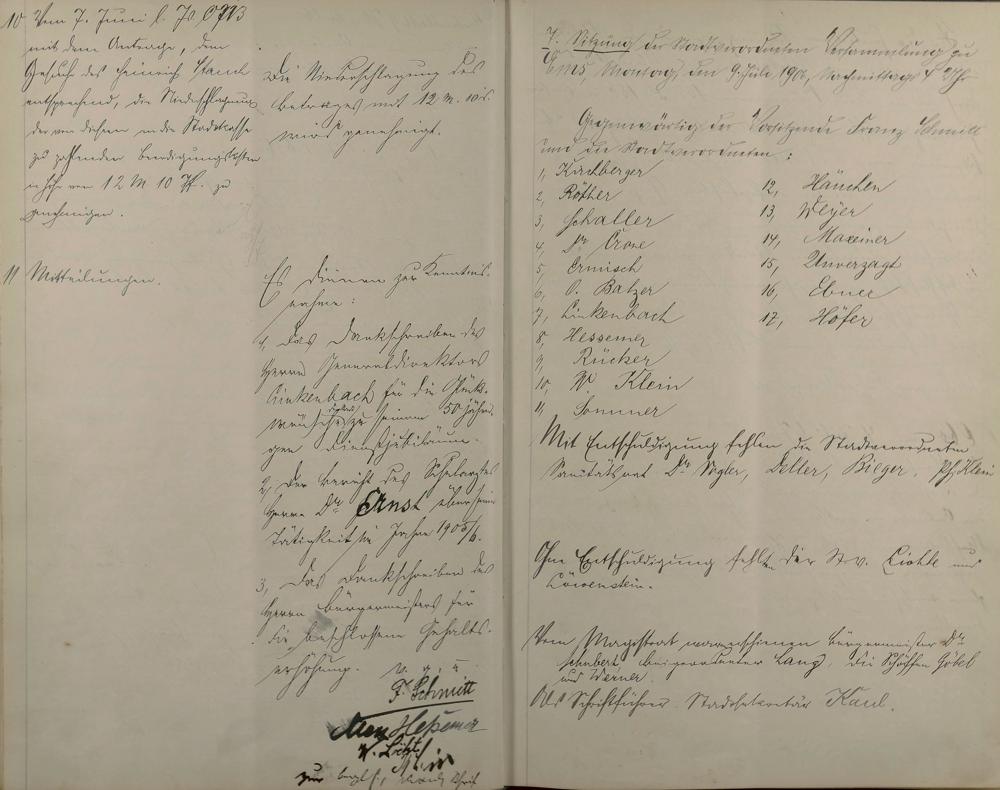 10 Vom 7. Juni l. Js
mit dem Antrage, dem
Gesuch des Heinrich
entsprechend, die Niederschlagung
der von diesem in die Stadtkasse
zu zahlenden Beerdigungskosten
in Höhe von 12 M 10 Pf. zu
genehmigen.
Die Niederschlagung des
Betrages mit 12 M. 10
wird genehmigt.
11 Mitteilungen.
Es dienen zur Kenntnis-
nahme:
1, Das Dankschreiben des
Herrn Generaldirektors
Linkenbach für die Glück-
wünsche zu seinem 50 jähri-
gen Dienstjubiläum.
2, Der Bericht des Schularztes
Herrn Dr. Ernst über seine
Tätigkeit im Jahre 1905/6.
3, Das Dankschreiben des
Herrn Bürgermeisters für
die beschlossene Gehalts-
erhöhung. v. g. u.
F. Schmitt
Heßemer
7. Sitzung der Stadtverordneten Versammlung zu
Ems, Montag, den 9. Juli 1906, Nachmittags 4 Uhr
Gegenwärtig der Vorsitzende Franz Schmitt
und die Stadtverordneten:
1, Kirchberger
2, Röther
3, Schaller
4, Dr Crone
5, Ermisch
6, O. Balzer
7, Linkenbach
8, Hessemer
9, Rücker
10, W Klein
11, Sommer
12, Hänchen
13, Weyer
14, Maxeiner
15, Unverzagt
16, Ebner
17, Höfer
Mit Entschuldigung fehlen die Stadtverordneten
Sanitätsrat Dr Vogler, Deller, Bieger, Ph. Klein
Ohne Entschuldigung fehlen der Stv. Lichte und
Löwenstein.
Vom Magistrat waren erschienen Bürgermeister Dr
Schubert, Beigeordneter Lanz, die Schöffen Göbel
und Werner.
Als Schriftführer Stadtsekretär Kaul.